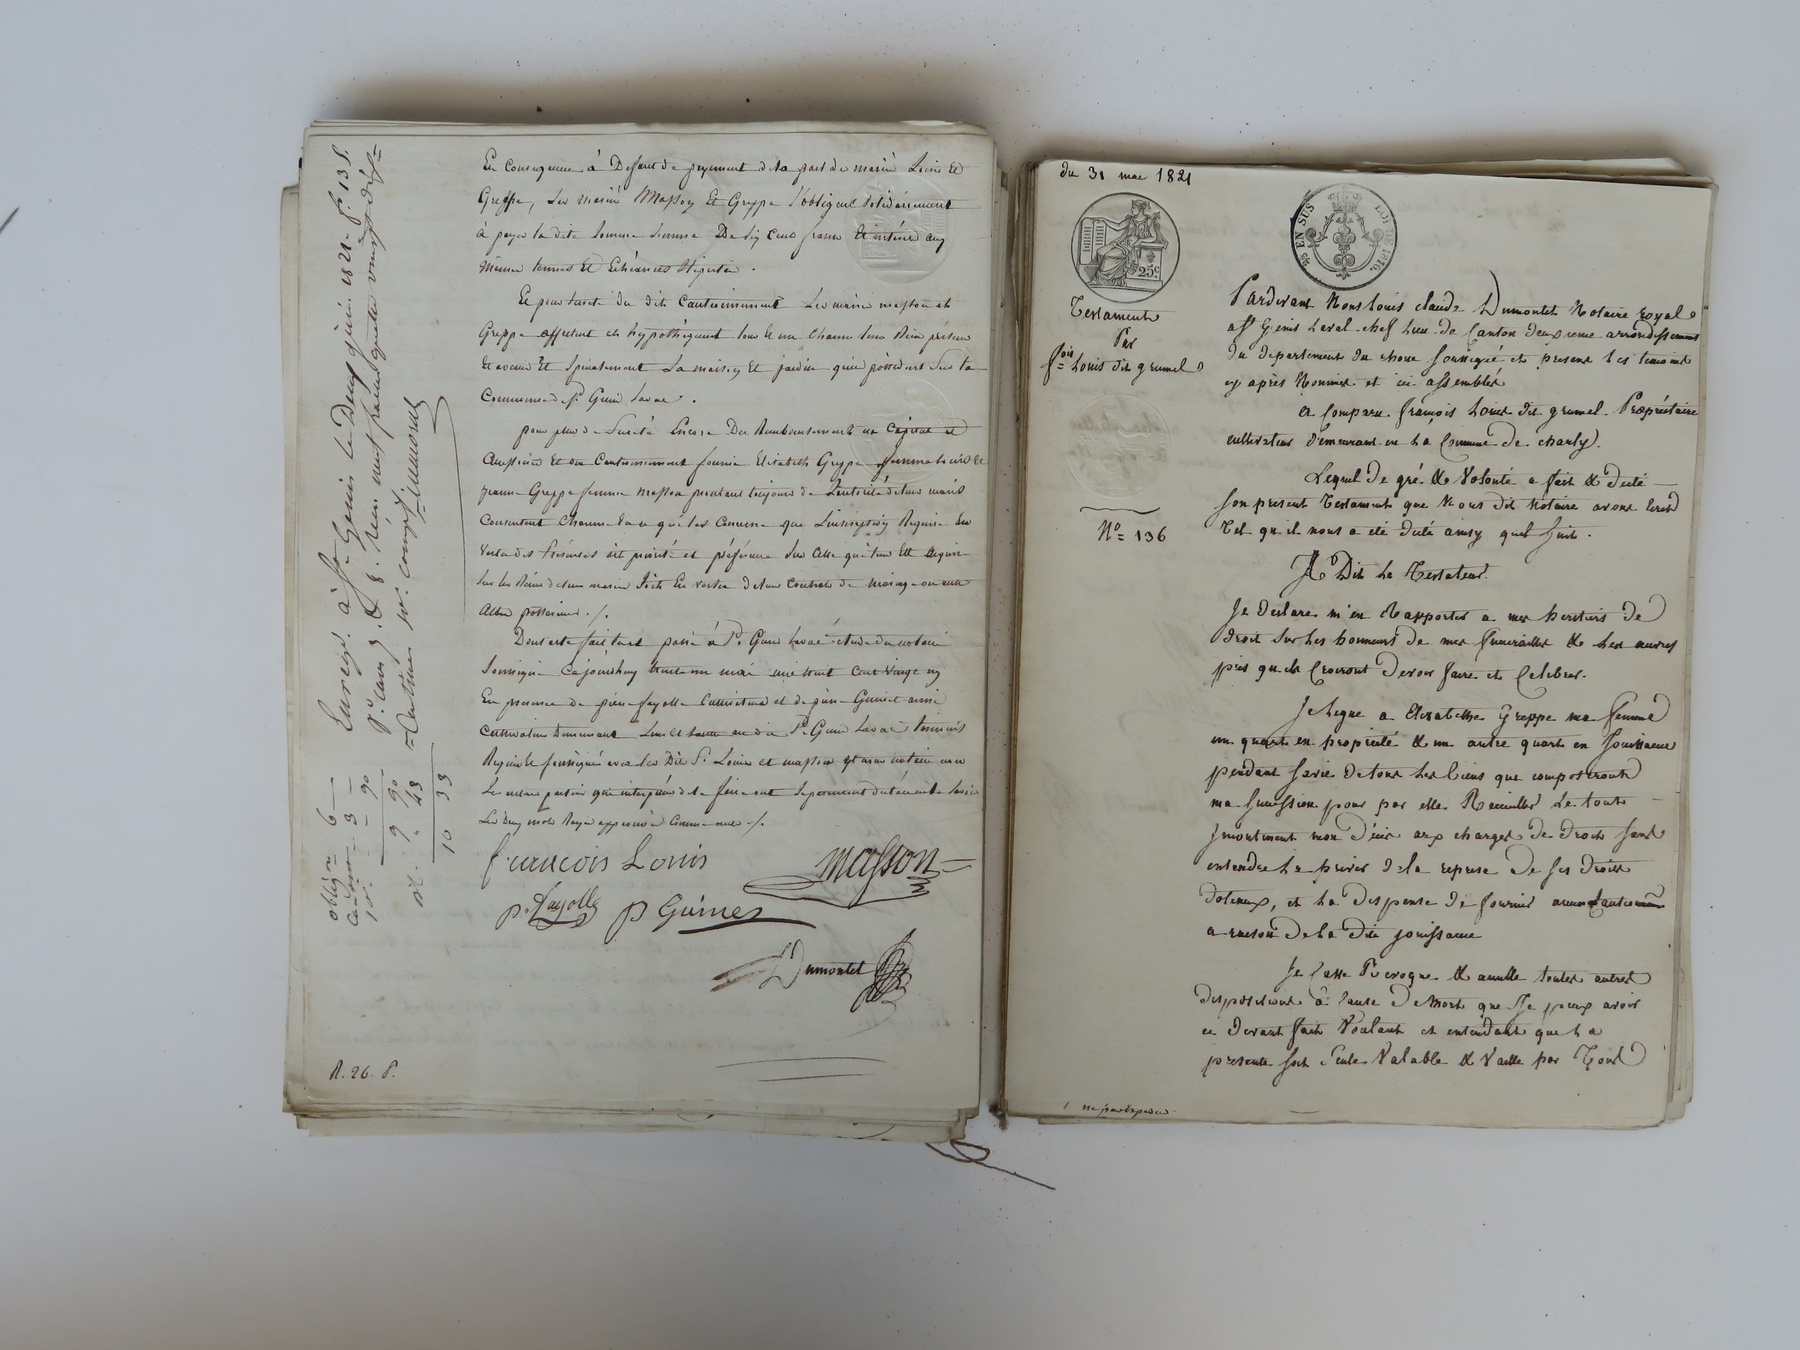 En consequence à Defaut de payement de la part de mariés Louis Et
Greppe, Les mariés Masson Et Greppe s'obligent solidairement
à payer la dite somme De Six Cens francs Et intérets aux
mêmes termes Et Echéances Stipulées.
Et pour sureté du dit Cautionnement Les mariés masson et
Greppe affectent et hypothèquent tous Et un Chacun leurs Biens présens
Et avenir Et Specialement La maison Et jardin qu'ils possèdent Sur la
Commune de St Genis Laval.
pour plus de Sureté Encore Du Remboursement en Capital et
accessoires Et du Cautionnement fournis Elizabeth Greppe femme Louis Et
jeanne Greppe femme masson procedant toujours de L'autorité de leurs maris
Consentent Chacune En ce qui les Concerne que L'inscription Requise En
vertu des Présentes ait priorité et préférence Sur Celle qui seroit Requise
Sur les Biens de leurs maris Soit En vertu de leur Contrat de mariage ou autre
Albre postérieur ./.
Dont acte fait Et passé à St Genis Laval étude du notaire
Soussigné Cejourdhuy trente un mai mil huit Cent vingt un
En presence de pierre fayolle Cultivateur et de pierre Guinet aussi
Cultivateur Demeurant L'un et L'autre audit St Genis Laval témoins
Requis Et soussignés avec Les Dits Srs Louis et masson Et nous notaire
Les deux mots Rayés approuvés Comme nuls ./.
François Louis
masson
p. fayolle p Guinet
Dumontet
R. 26. S.
Enregé à St Genis Le Deux juin 1821. fo 13 S.
Vo Case 7 & 8. Reçu neuf francs quatre vingt dix
Centimes Sor. compris
Dumont
obligon 6 —
Caution 3 —
1o — 90
9 90
rôl. " 43
10 33
du 31 mai 1821
25c
25 EN SUS LOI DE 1816.
Testament
Par
fois Louis dit grumel
No 136
Pardevant Nous Louis claude Dumontet Notaire royal
a St Genis Laval chef lieu de Canton deuxieme arrondissement
du departement du rhone soussigné et present Les temoins
cy après Nommés et ici assemblés
A Comparu françois Louis dit grumel. Propriétaire
cultivateur demeurant en La Commune de charly.
Lequel De gré & Volonté a fait & dicté
Son present Testament que Nous dit Notaire avons ecrit
Tel qu'il nous a eté dicté ainsy quil suit.
A Dit Le Testateur.
Je declare m'en Rapporter a mes heritiers de
droit Sur Les honneurs de mes funerailles & Les œuvres
pies qu'ils Croiront Devoir faire et Celebrer.
Je Legue a Elizabethe Greppe ma femme
un quart en proprieté & un autre quart en Jouissance
pendant sa vie de tous Les biens que composeront
ma succession pour par elle Recueillir Le tout
Jmontinent mon Décès aux charges de Droit sans
entendre La priver de la reprise De ses droits
dotaux, et La dispense de fournir aucun Cautionnement
a raison De La dite jouissance
Je Casse Revoque & annulle toutes autres
dispositions à Cause De Mort que Je peux avoir
ci Devant fait Voulant et entendant que La
presente soit Seule Valable & Vaille par Tout